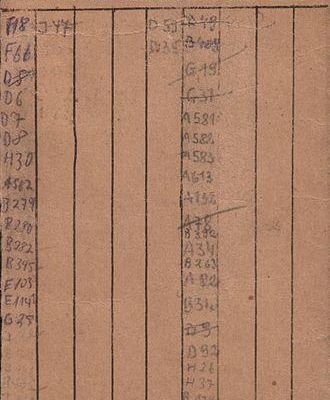 F18 J47
F66
D8
D6
D7
D8
H30
A582
B279
B280
B282
B395
E103
E114
G28
D53 B49
D35
G19
G31
A581
A582
A583
A613
A138
A78
B392
A34
B263
A82
B310
D9
D92
H26
H37